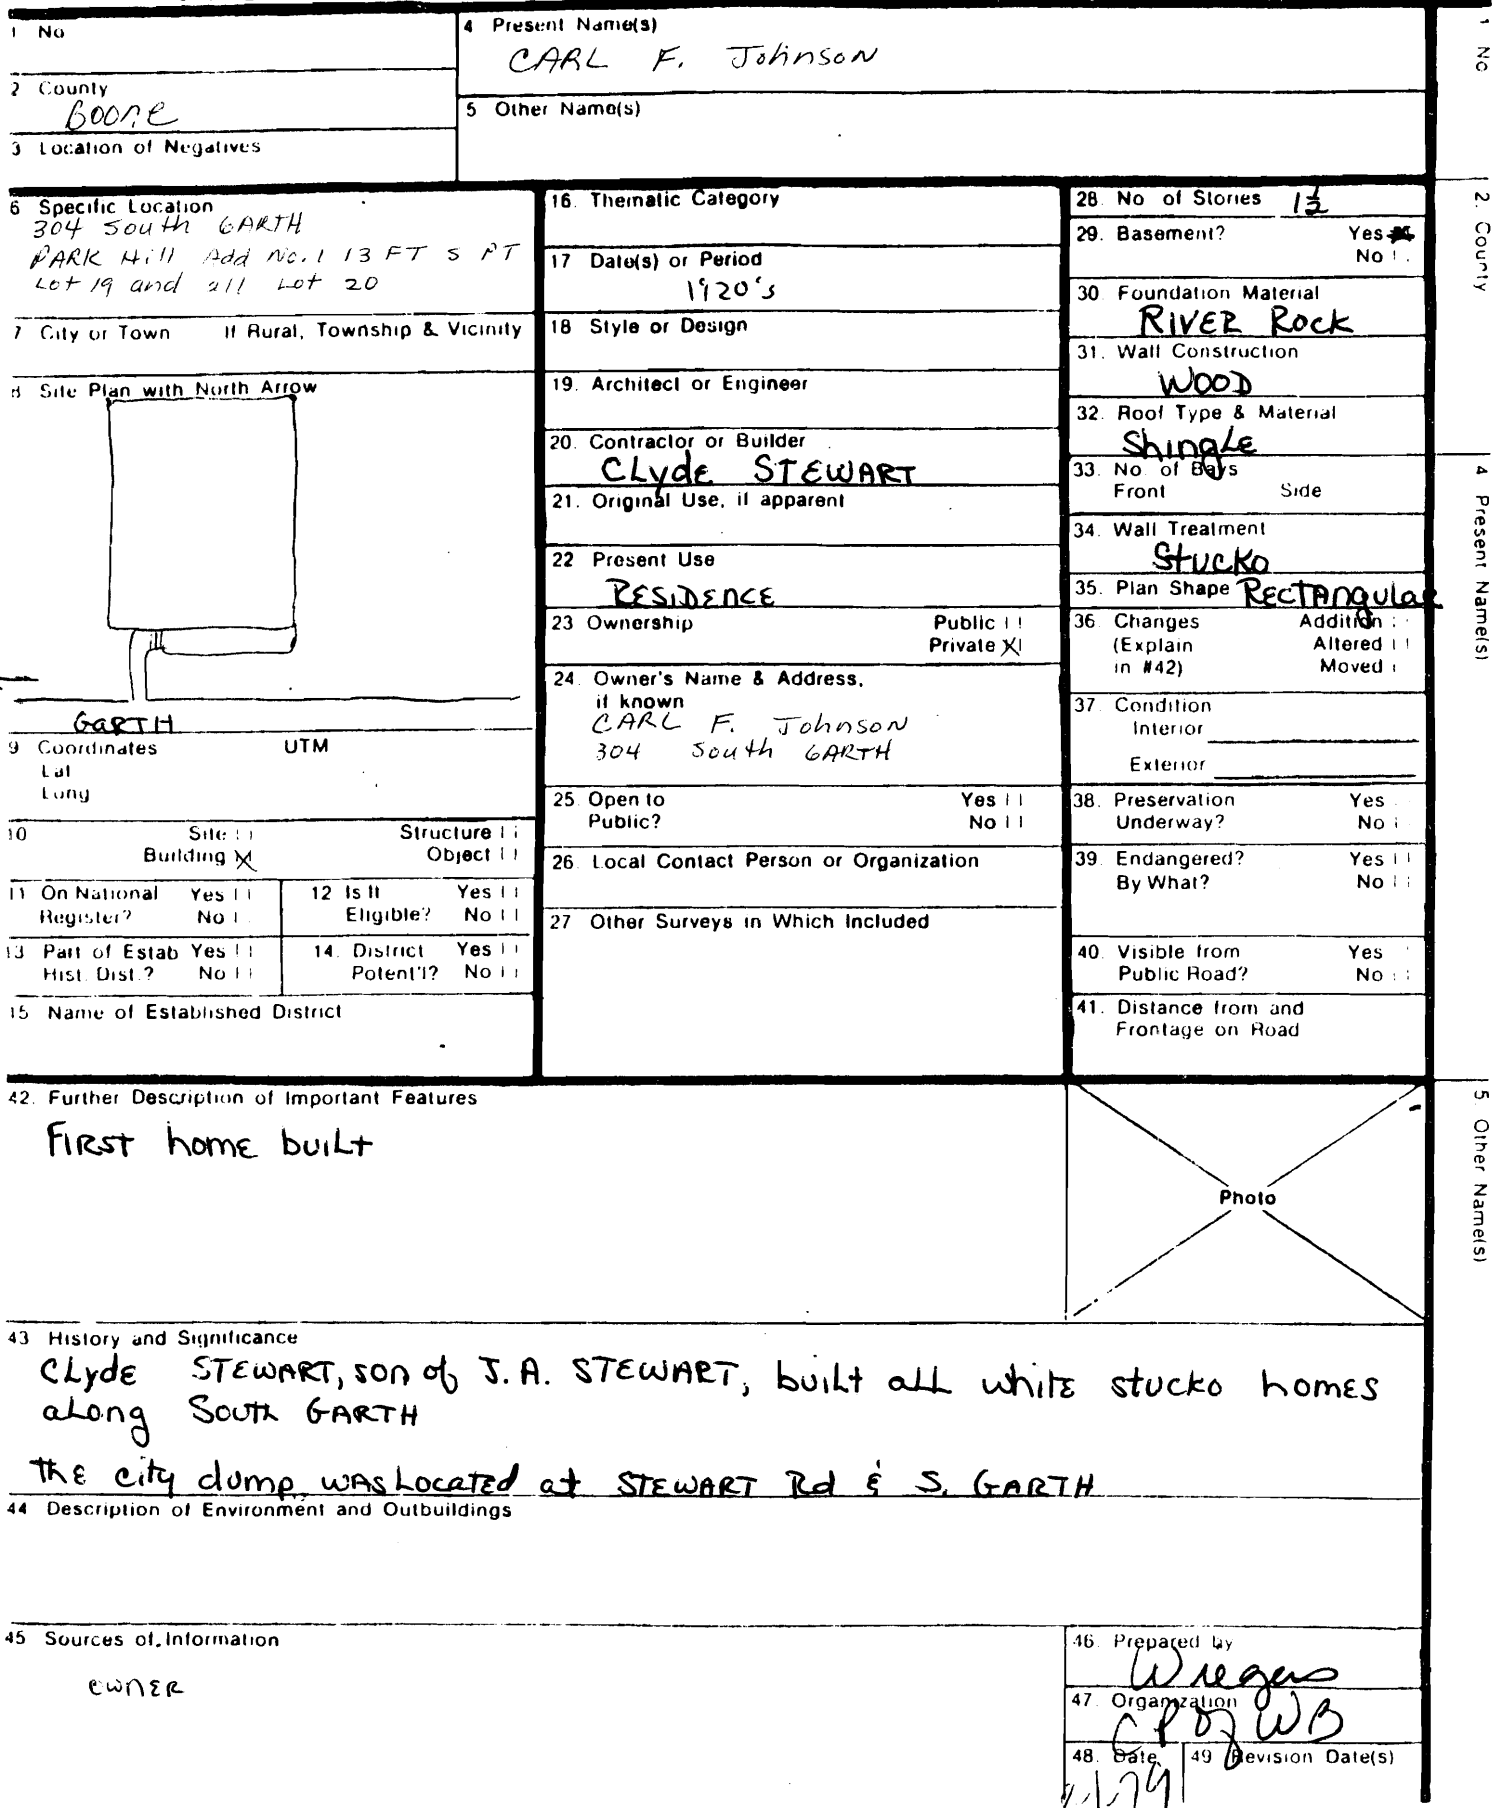 1 No
4 Present Name(s)
CARL F. Johnson
2 County
Boone
5 Other Name(s)
3 Location of Negatives
6 Specific Location
304 South GARTH
PARK Hill Add No. 1 13 FT S PT
Lot 19 and all Lot 20
7 City or Town If Rural, Township & Vicinity
8 Site Plan with North Arrow
GARTH
9 Coordinates UTM
Lat
Long
10 Site Structure
Building X Object
11 On National Register? Yes No
12 Is It Eligible? Yes No
13 Part of Estab Hist. Dist.? Yes No
14. District Potent'l? Yes No
15 Name of Established District
16. Thematic Category
17 Date(s) or Period
1920's
18 Style or Design
19. Architect or Engineer
20. Contractor or Builder
CLyde STEWART
21. Original Use, if apparent
22 Present Use
RESIDENCE
23 Ownership Public
Private X
24. Owner's Name & Address,
if known
CARL F. Johnson
304 South GARTH
25. Open to Yes
Public? No
26. Local Contact Person or Organization
27 Other Surveys in Which Included
28. No of Stories 1½
29. Basement? Yes
No
30. Foundation Material
RIVER Rock
31. Wall Construction
WOOD
32. Roof Type & Material
ShingLE
33. No. of Bays
Front Side
34. Wall Treatment
Stucko
35. Plan Shape RECTANgulaR
36. Changes Addition
(Explain Altered
in #42) Moved
37. Condition
Interior
Exterior
38. Preservation Yes
Underway? No
39. Endangered? Yes
By What? No
40. Visible from Yes
Public Road? No
41. Distance from and
Frontage on Road
42. Further Description of Important Features
FIRST home built
Photo
43 History and Significance
CLyde STEWART, son of J.A. STEWART, built all white stucko homes
along South GARTH
The city dump was Located at STEWART Rd & S. GARTH
44 Description of Environment and Outbuildings
45 Sources of Information
OWNER
46. Prepared by
47. Organization
48. Date
49 Revision Date(s)
1 No
2. County
4 Present Name(s)
5. Other Name(s)